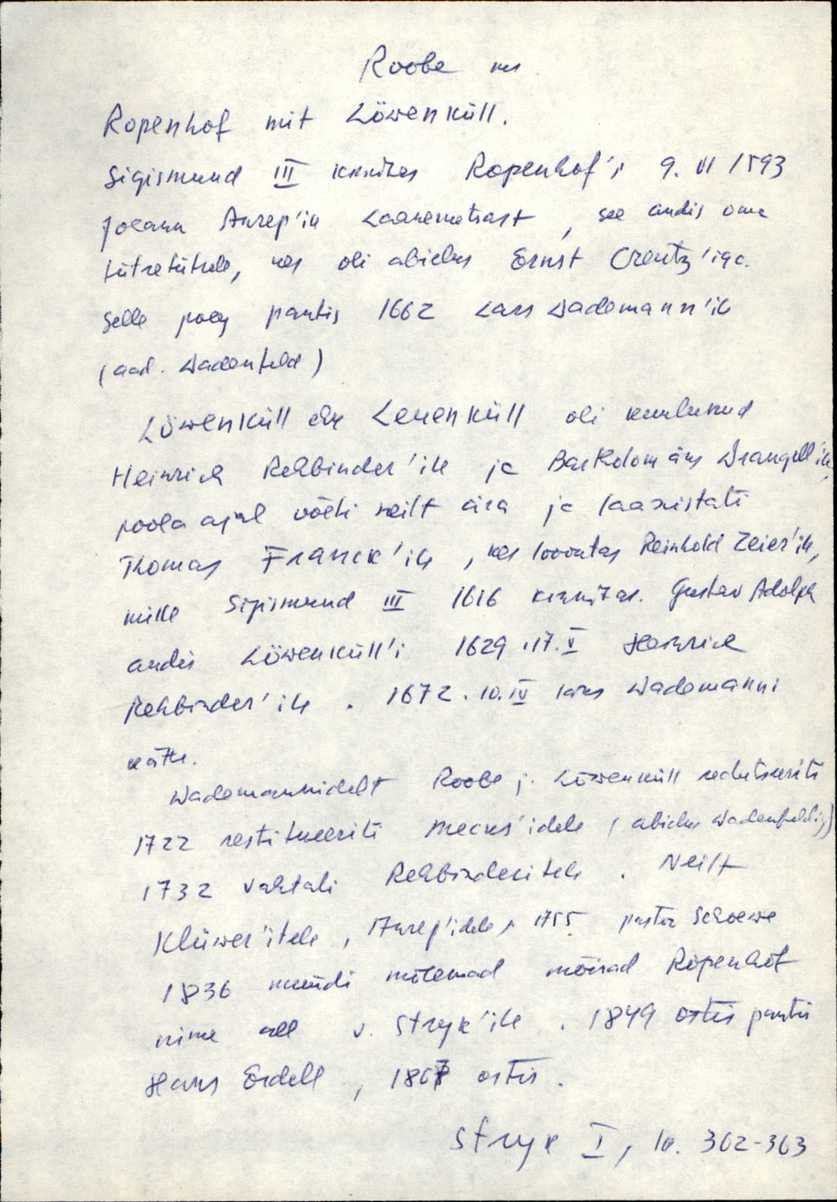 Roobe ms
Ropenhof mit Löwenküll.
Sigismund III kinnitas Ropenhof'i 9. VI 1593
Johann Anrep'ile Läänemetsast, see andis oma
tütretütrele, kes oli abielus Ernst Creutz'iga.
Selle poeg pantis 1662 Lars Wademann'ile
(aad. Wadenfeld)
Löwenküll ehk Leuenküll oli kuulunud
Heinrich Rehbinder'ile ja Bartholomäus Wrangell'ile,
poola ajal võeti neilt ära ja laanistati
Thomas Franck'ile, kes loovutas Reinhold Zeier'ile,
mille Sigismund III 1616 kinnitas. Gustav Adolph
andis Löwenküll'i 1629.17.V Heinrich
Rehbinder'ile. 1672.10.IV Lars Wademanni
kätte.
Wademannidelt Roobe j. Löwenküll redutseeriti
1722 restitueeriti Mecks'idele (abielus Wadenfeldig.)
1732 vahtali Rehbinderitele. Neilt
Klüwer'itele, Anrep'idele, 1755 pastor Schoewe
1836 müüdi mõlemad mõisad Ropenhof
nime all v. Stryk'ile. 1849 ostis pantis
Hans Erdell, 1867 ostis.
Stryk I, lk. 362-363